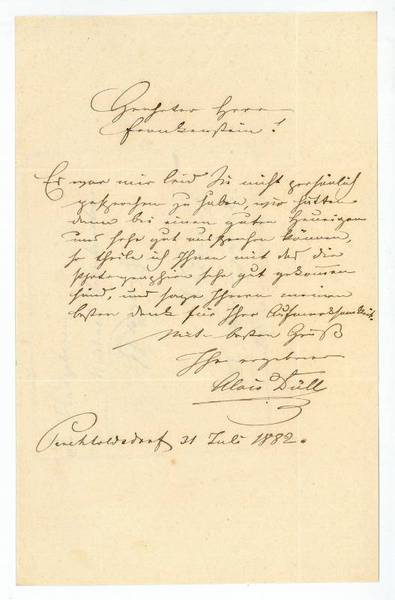 Geehrter Herr
Frankenstein!
Es war mir leid Sie nicht persönlich
gesprochen zu haben, wir hätten
dann bei einem guten Heurigen
uns sehr gut aussprechen können,
so theile ich Ihnen mit das die
Photographien sehr gut gekommen
sind, und sage Ihnen meinen
besten Dank für Ihre Aufmerksamkeit.
Mit besten Gruß
Ihr ergebener
Alois Düll
Perchtoldsdorf 31 Juli 1882.